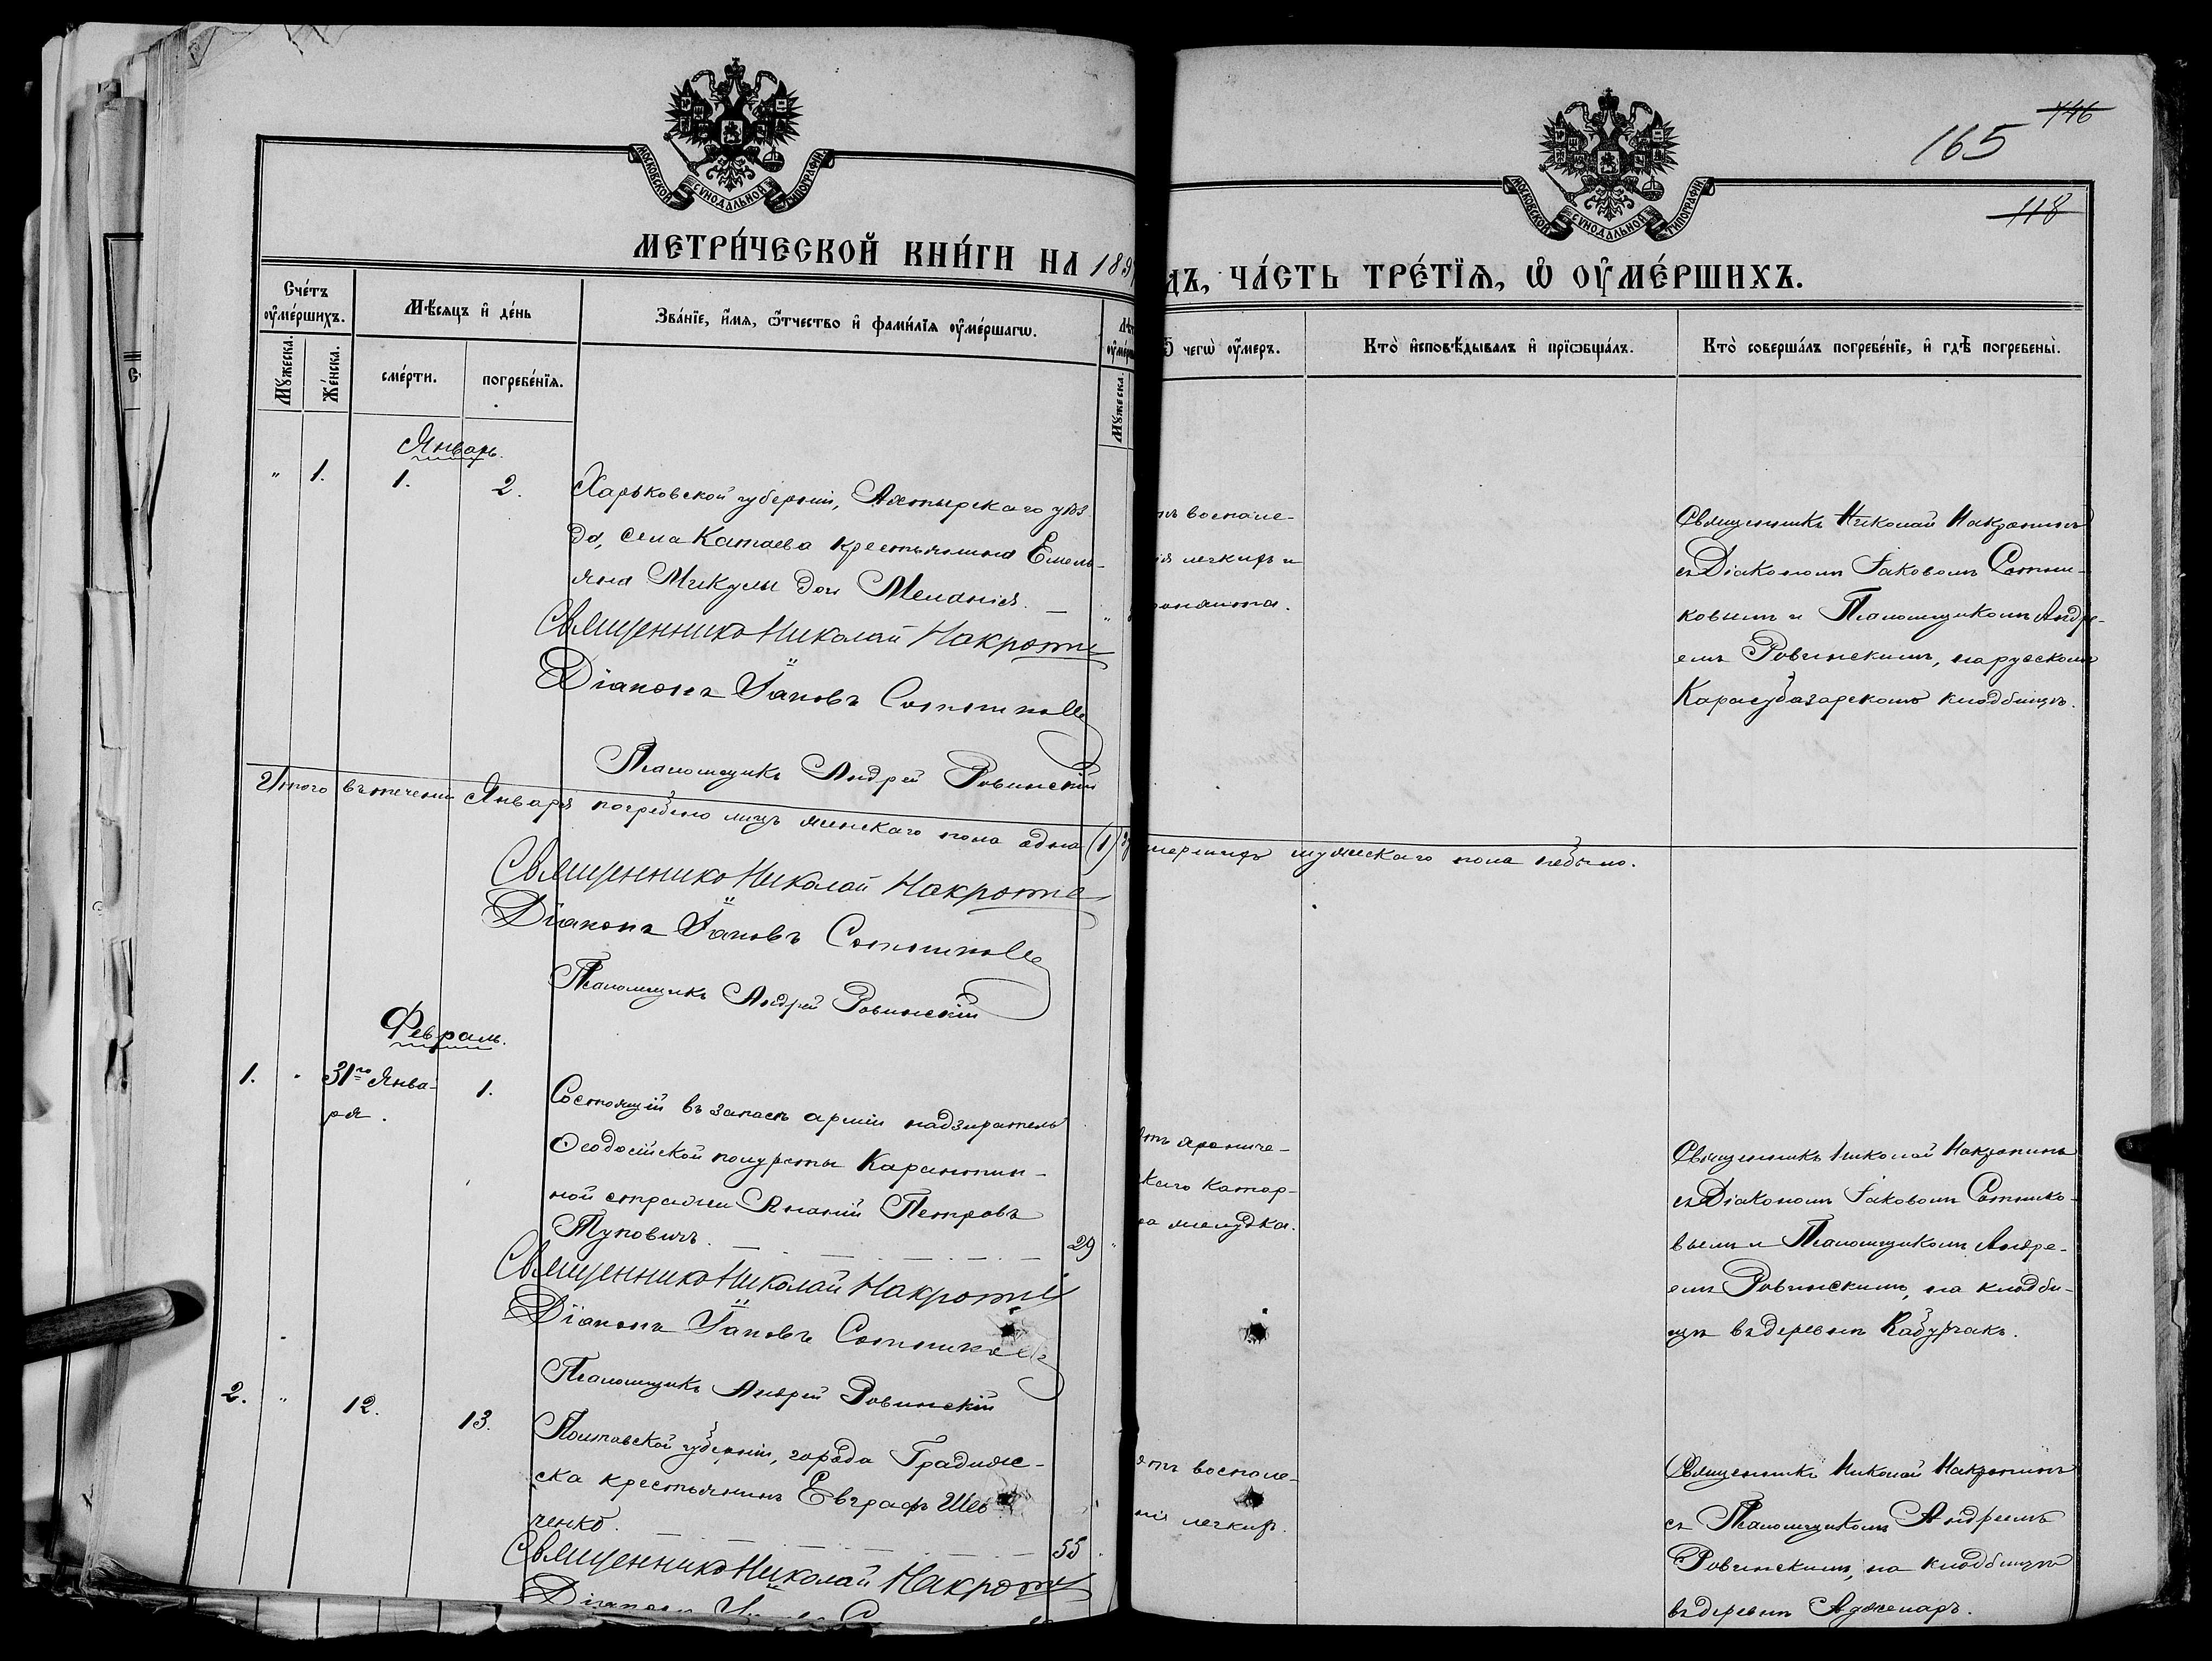 146
165
118
МОСКОВСКОЙ СѴНОДАЛЬНОЙ ТИПОГРАФІИ
МОСКОВСКОЙ СѴНОДАЛЬНОЙ ТИПОГРАФІИ
МЕТРИ́ЧЕСКОЙ КНИ́ГИ НА 189
ДЪ, ЧА́СТЬ ТРЕ́ТЇѦ, Ѡ҆ ОУ҆МЕ́РШИХЪ.
Сче́тъ
оу҆ме́ршихъ.
Мꙋ́жеска.
Же́нска.
Мѣ́сяцъ и҆ де́нь
сме́рти.
погребе́нїя.
Зва́нїе, и҆́мя, ѻ҆́тчество и҆ фами́лїя оу҆ме́ршагѡ.
Мꙋ́жеска.
чегѡ̀ оу҆́меръ.
Кто̀ и҆сповѣ́дывалъ и҆ прїѡбща́лъ.
Кто̀ соверша́лъ погребе́нїе, и҆ гдѣ̀ погребены̀.
Январь.
" 1. 1. 2.
Харьковской губерніи, Ахтырскаго уѣз-
да, села Катаева крестьянина Емель-
яна Микулы дочь Меланія.
Священникъ Николай
Діаконъ Іаковъ Сотниковъ
Псаломщикъ Андрей Ровинскій
воспале-
легкихъ и
Священникъ Николай
съ Діакономъ Іаковомъ Сотни-
ковымъ и Псаломщикомъ Андре-
емъ Ровинскимъ, на русскомъ
Карасубазарскомъ кладбищѣ.
Итого въ теченіи Января погребено лицъ женскаго пола одна (1)
мершихъ мужескаго пола небыло.
Священникъ Николай
Діаконъ Іаковъ Сотниковъ
Псаломщикъ Андрей Ровинскій
Февраль.
1. " 31го Янва-
ря.
1.
Состоящій въ запасѣ арміи надзиратель
Ѳеодосійской полуроты Карантин-
ной стражи Ананій Петровъ
Туповичъ.
29
Священникъ Николай
Діаконъ Іаковъ Сотниковъ
Псаломщикъ Андрей Ровинскій
хрониче-
скаго катар-
ра желудка.
Священникъ Николай
съ Діакономъ Іаковомъ Сотнико-
вымъ и Псаломщикомъ Андре-
емъ Ровинскимъ, на кладби-
щѣ въ деревнѣ Кабурчакъ.
2. " 12. 13.
Полтавской губерніи, города Градиж-
ска крестьянинъ Евграфъ Шев-
ченко.
55
Священникъ Николай
Діаконъ
воспале-
нія легкихъ.
Священникъ Николай
съ Псаломщикомъ Андреемъ
Ровинскимъ, на кладбищѣ
въ деревнѣ Аджеларъ.